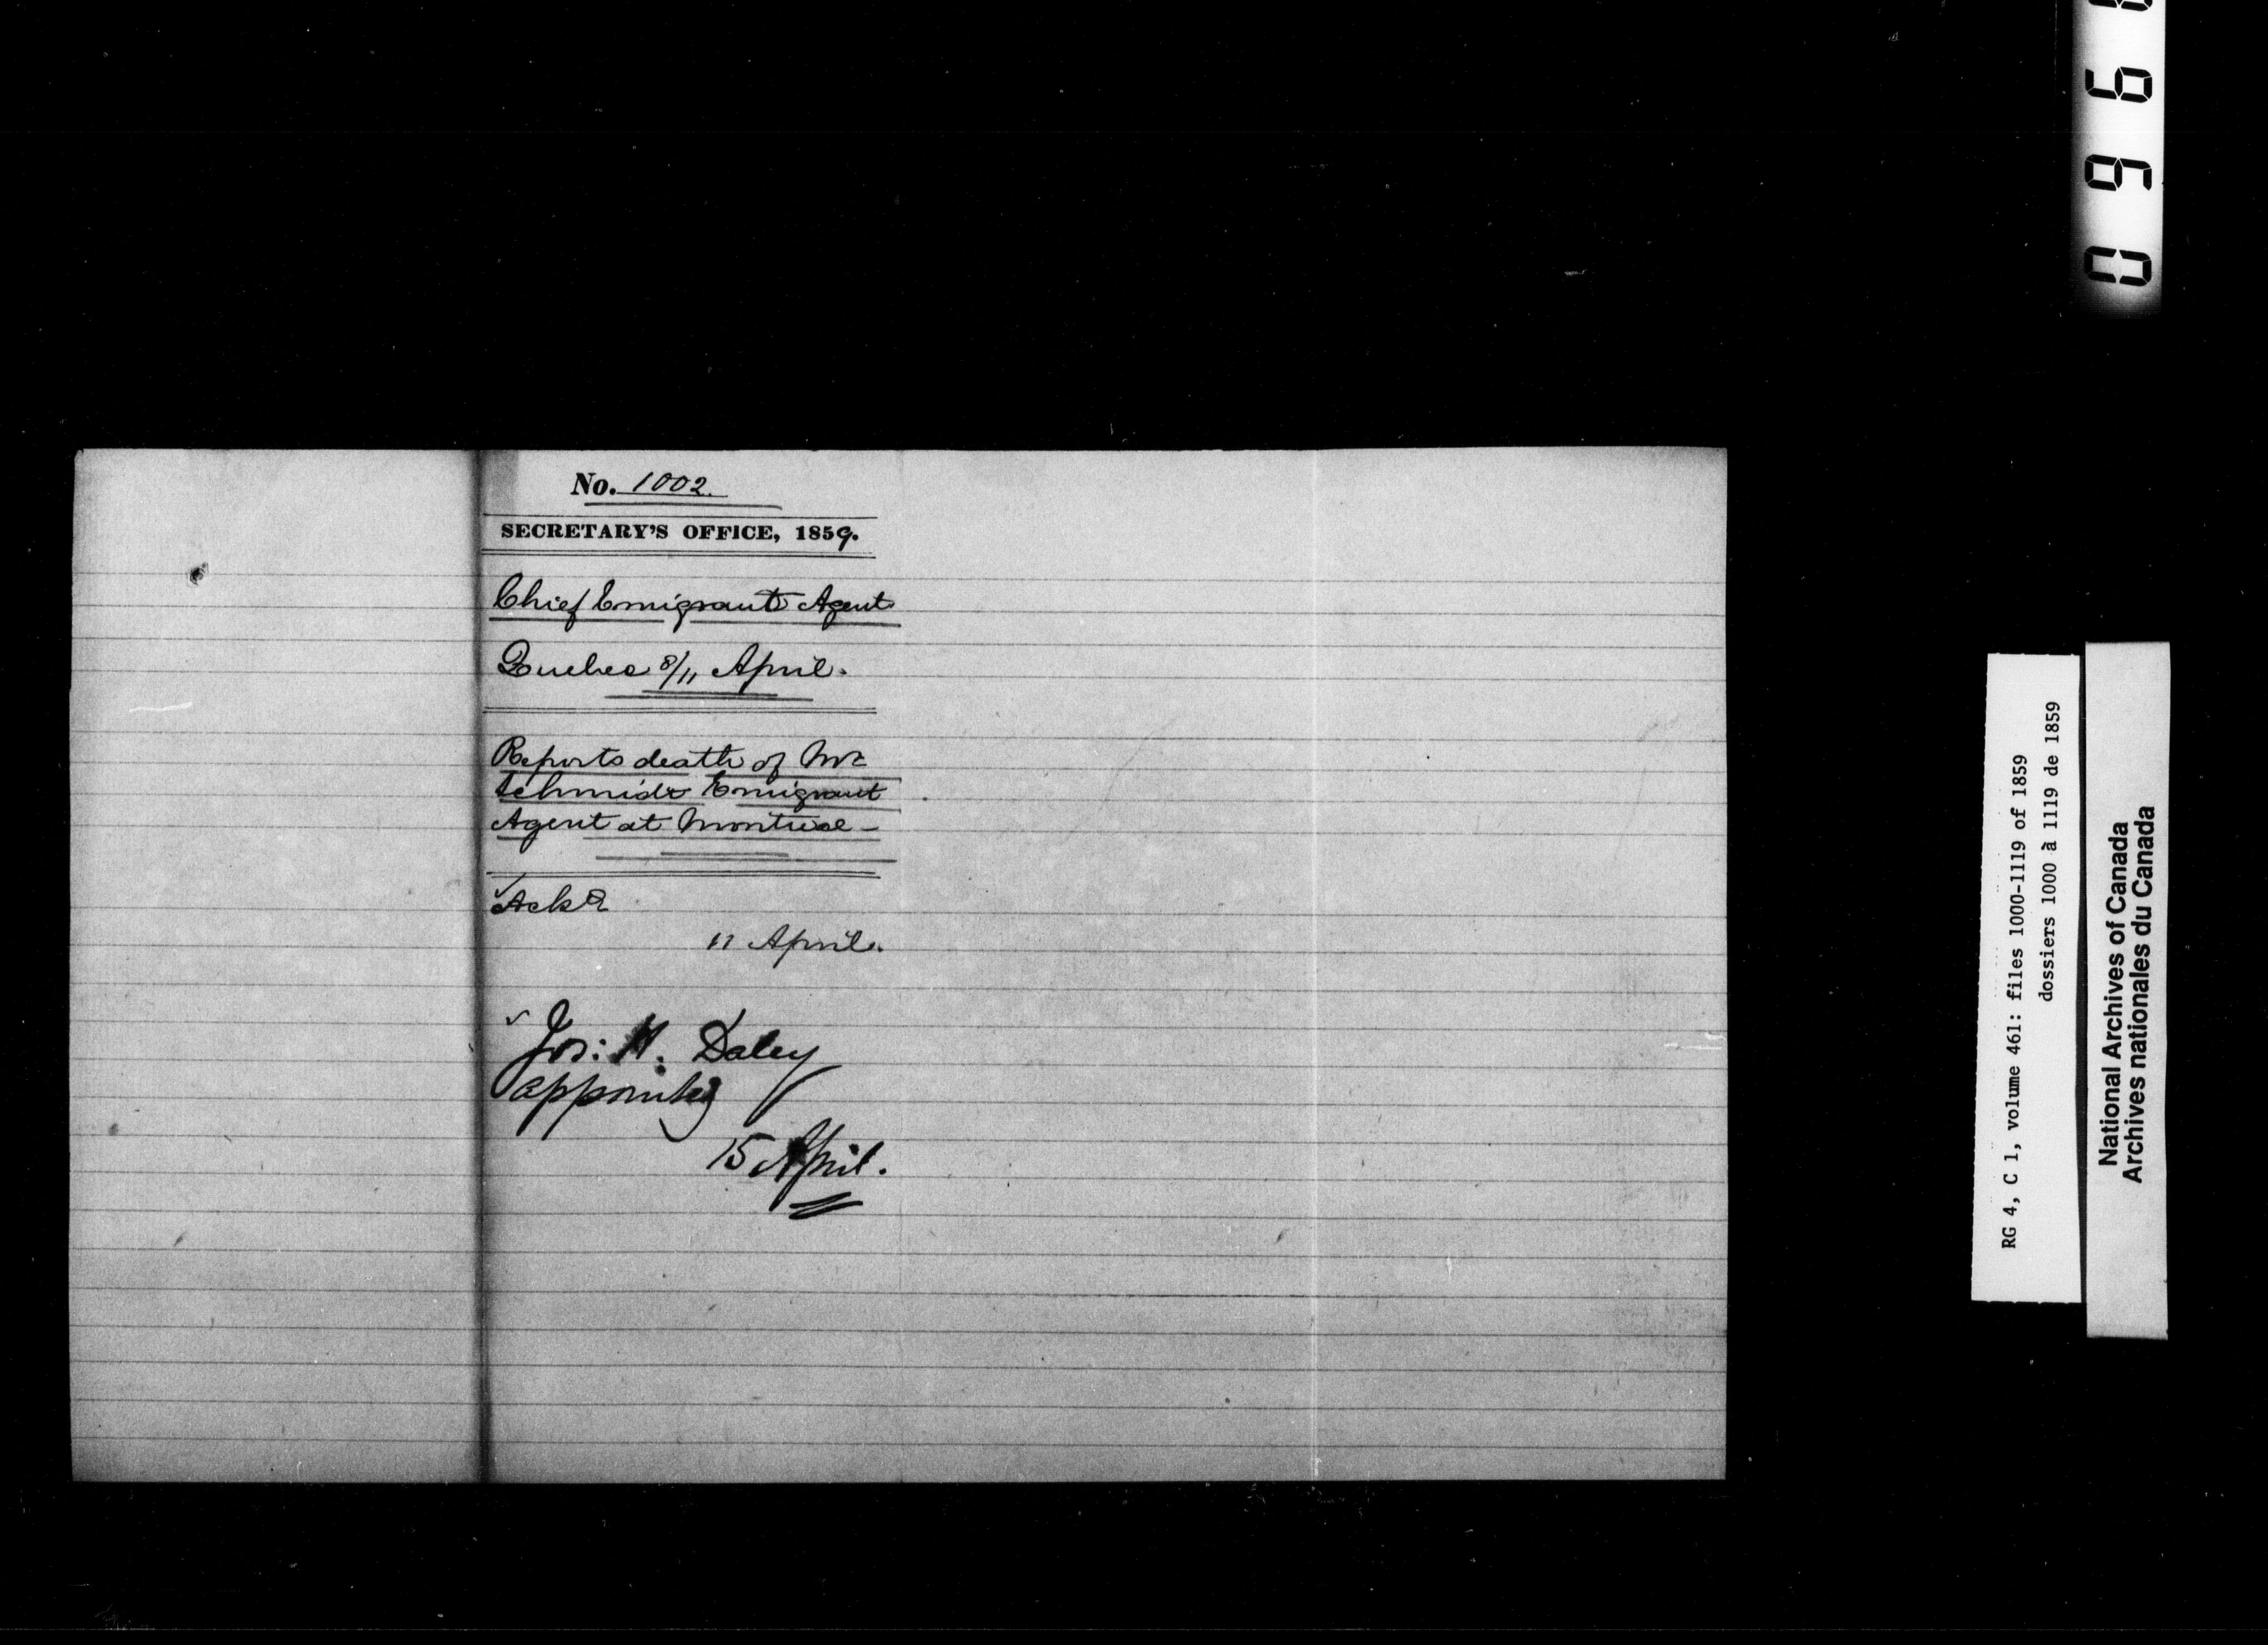 No. 1002.
SECRETARY'S OFFICE, 1859.
Chief Emigrant Agent
Quebec 8/11 April.
Reports death of Mr
Schmidt Emigrant
Agent at Montreal -
Ackd
11 April.
Jos: H. Daley
appointed
15 April.
RG 4, C 1, volume 461: files 1000-1119 of 1859
dossiers 1000 à 1119 de 1859
National Archives of Canada
Archives nationales du Canada
0 9 6